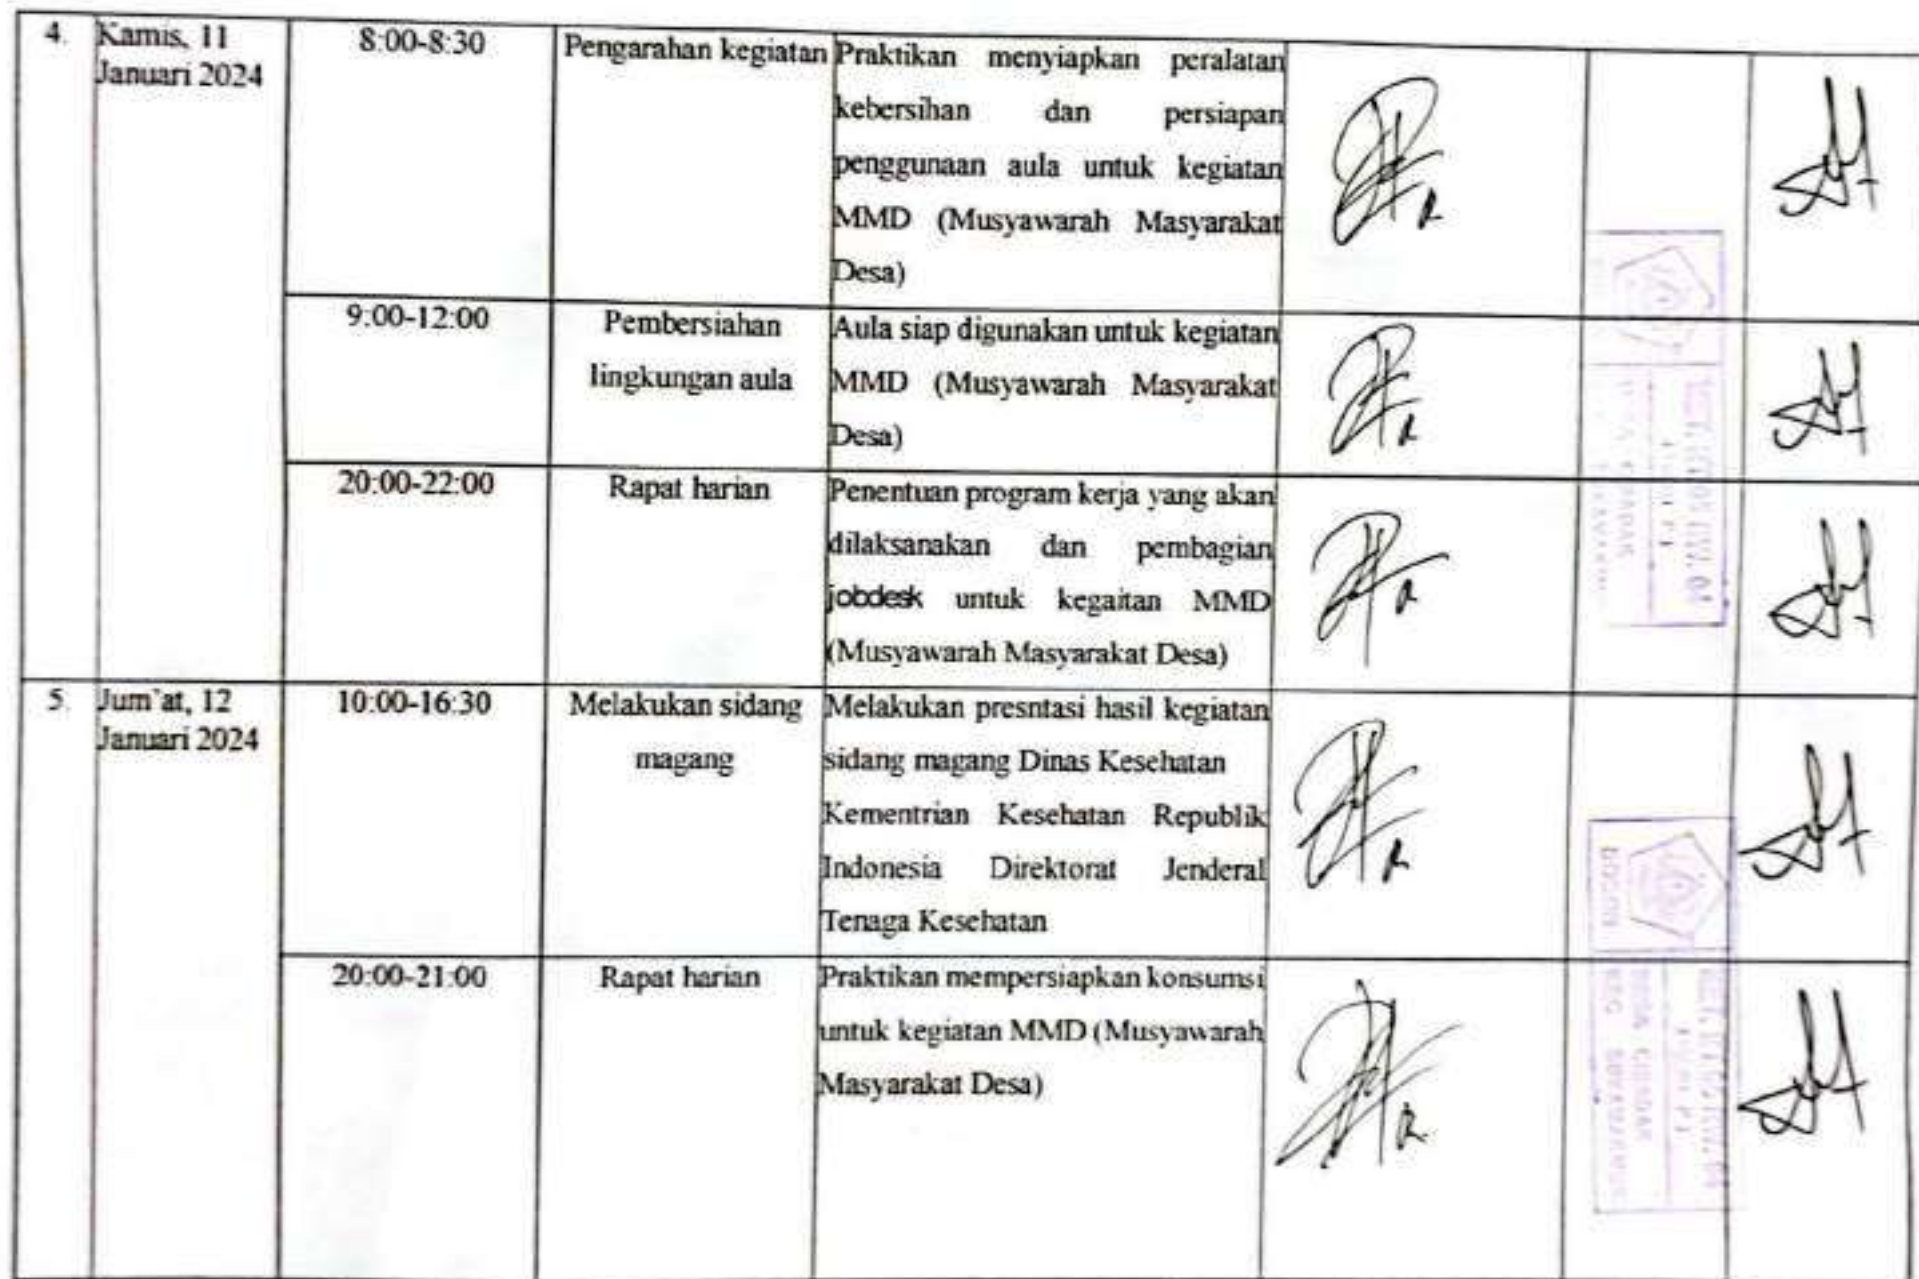 4. Kamis, 11
Januari 2024
8:00-8:30
Pengarahan kegiatan
Praktikan menyiapkan peralatan
kebersihan dan persiapan
penggunaan aula untuk kegiatan
MMD (Musyawarah Masyarakat
Desa)
9:00-12:00
Pembersiahan
lingkungan aula
Aula siap digunakan untuk kegiatan
MMD (Musyawarah Masyarakat
Desa)
20:00-22:00
Rapat harian
Penentuan program kerja yang akan
dilaksanakan dan pembagian
jobdesk untuk kegaitan MMD
(Musyawarah Masyarakat Desa)
5. Jum`at, 12
Januari 2024
10:00-16:30
Melakukan sidang
magang
Melakukan presntasi hasil kegiatan
sidang magang Dinas Kesehatan
Kementrian Kesehatan Republik
Indonesia Direktorat Jenderal
Tenaga Kesehatan
20:00-21:00
Rapat harian
Praktikan mempersiapkan konsumsi
untuk kegiatan MMD (Musyawarah
Masyarakat Desa)